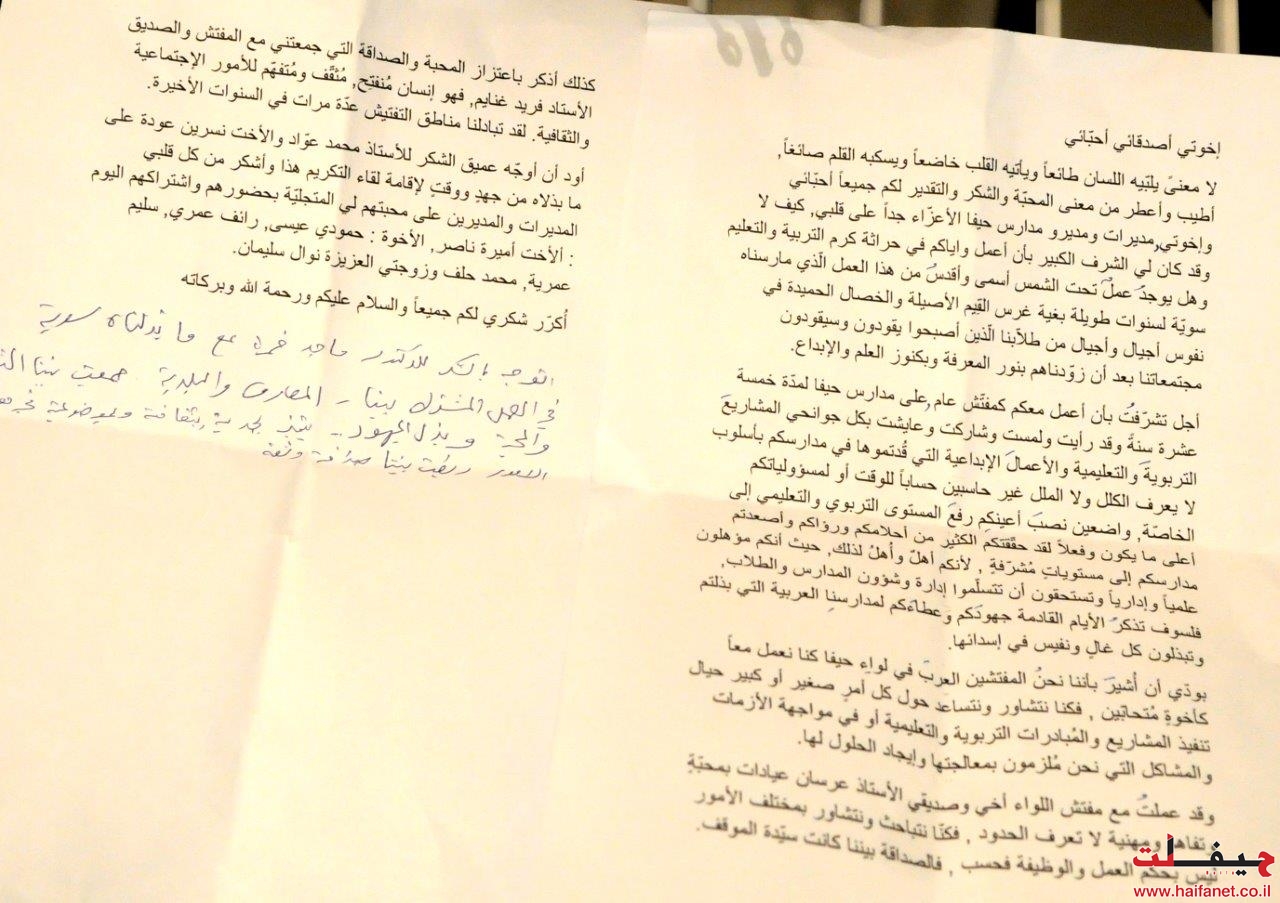 إخوتي أصدقائي أحبّائي
لا معنىً يلبّيه اللسان طائعاً ويأتيه القلب خاضعاً ويسكبه القلم صائغاً,
أطيب وأعطر من معنى المحبّة والشكر والتقدير لكم جميعاً أحبّائي
وإخوتي,مديرات ومديرو مدارس حيفا الأعزّاء جداً على قلبي, كيف لا
وقد كان لي الشرف الكبير بأن أعمل واياكم في حراثة كرم التربية والتعليم
وهل يوجدُ عملٌ تحت الشمس أسمى وأقدسُ من هذا العمل الّذي مارسناه
سويّة لسنوات طويلة بغية غرس القيم الأصيلة والخصال الحميدة في
نفوس أجيال وأجيال من طلّابنا الّذين أصبحوا يقودون وسيقودون
مجتمعاتنا بعد أن زوّدناهم بنور المعرفة وبكنوز العلم والإبداع.
أجل تشرّفتُ بأن أعمل معكم كمفتّش عام على مدارس حيفا لمدّة خمسة
عشرة سنةً وقد رأيت ولمست وشاركت وعايشت بكل جوانحي المشاريعَ
التربويةَ والتعليمية والأعمالَ الإبداعية التي قُدتموها في مدارسكم بأسلوب
لا يعرف الكلل ولا الملل غير حاسبين حساباً للوقت أو لمسؤولياتكم
الخاصّة, واضعين نصبَ أعينكم رفعَ المستوى التربوي والتعليمي إلى
أعلى ما يكون وفعلاً لقد حقّقتكم الكثير من أحلامكم ورؤاكم وأصعدتم
مدارسكم إلى مستوياتٍ مُشرّفةٍ , لأنكم أهلٌ وأهلُ لذلك, حيث أنكم مؤهلون
علمياً وإدارياً وتستحقون أن تتسلّموا إدارة وشؤون المدارس والطلاب,
فلسوف تذكرُ الأيام القادمة جهودَكم وعطاءَكم لمدارسنا العربية التي بذلتم
وتبذلون كل غالٍ ونفيس في إسدائها.
بودّي أن أشيرَ بأننا نحنُ المفتشين العربَ في لواءِ حيفا كنا نعمل معاً
كأخوةٍ مُتحابّين , فكنا نتشاور ونتساعد حول كل أمرٍ صغير أو كبير حيال
تنفيذ المشاريع والمُبادرات التربوية والتعليمية أو في مواجهة الأزمات
والمشاكل التي نحن مُلزمون بمعالجتها وإيجاد الحلول لها.
وقد عملتُ مع مفتش اللواء أخي وصديقي الأستاذ عرسان عيادات بمحبّةٍ
وتفاهم ومهنية لا تعرف الحدود , فكنّا نتباحث ونتشاور بمختلف الأمور
ليس بحكم العمل والوظيفة فحسب , فالصداقة بيننا كانت سيّدة الموقف.
كذلك أذكر باعتزاز المحبة والصداقة التي جمعتني مع المفتش والصديق
الأستاذ فريد غنايم, فهو إنسان مُنفتِح, مُثقّف ومُتفهّم للأمور الإجتماعية
والثقافية. لقد تبادلنا مناطق التفتيش عدّة مرات في السنوات الأخيرة.
أود أن أوجّه عميق الشكر للأستاذ محمد عوّاد والأخت نسرين عودة على
ما بذلاه من جهدٍ ووقتٍ لإقامة لقاء التكريم هذا وأشكر من كل قلبي
المديرات والمديرين على محبتهم لي المتجليّة بحضورهم واشتراكهم اليوم
: ألأخت أميرة ناصر, الأخوة : حمودي عيسى, رائف عمري, سليم
عمرية, محمد خلف وزوجتي العزيزة نوال سليمان.
أُكرّر شكري لكم جميعاً والسلام عليكم ورحمة الله وبركاته
اتوجه بالشكر للدكتور ماجد خمرة على ما بذلناه سوية
في العمل المشترك بيننا المعارف والبلدية. جمعت بيننا
والمحبة وبذل المجهود يتميز بجدية بثقافة وبموضوعية
ربطت بيننا صداقة وثقة
حيفا نت
www.haifanet.co.il